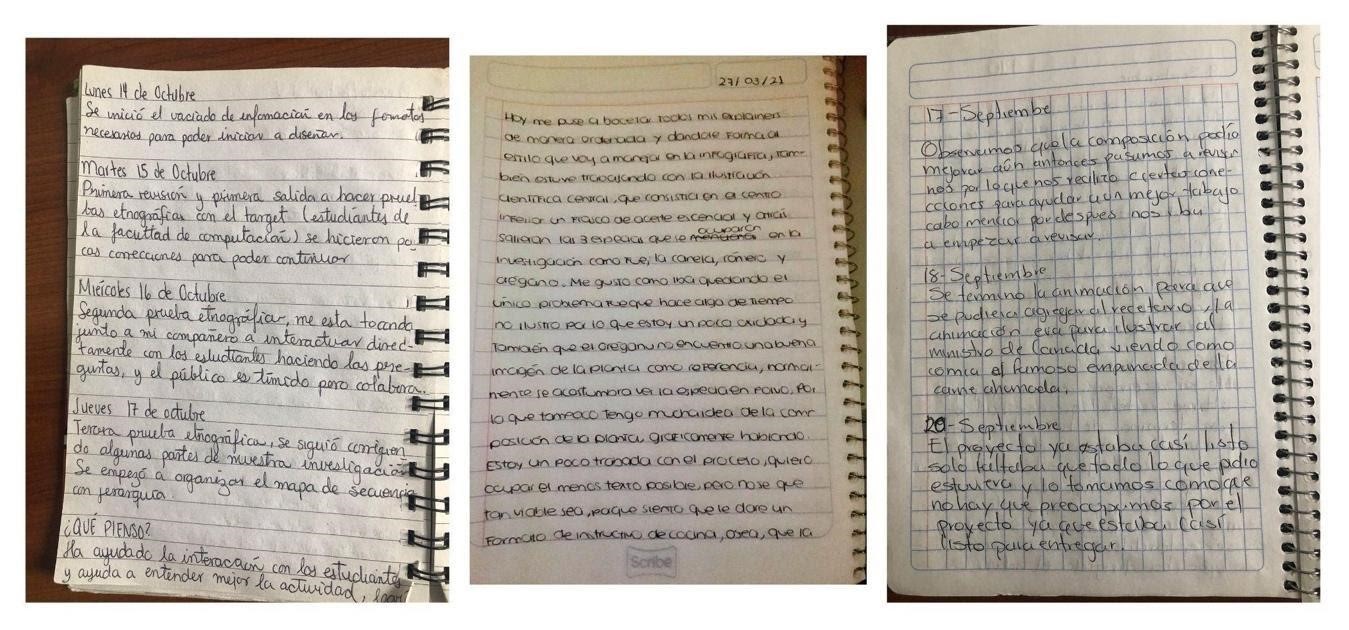 Lunes 14 de Octubre
Se inició el vaciado de infomación en los formatos
necesarios para poder iniciar a diseñar.
Martes 15 de Octubre
Primera revisión y primera salida a hacer pruel
bas etnográficas con el target (estudiantes de
la facultad de computación) se hicieron po
cas correcciones para poder continuar
Miércoles 16 de Octubre
Segunda prueba etnográfica, me esta tocando
junto a mi compañero a interactuar direc-
tamente con los estudiantes haciendo las pre-
guntas, y el público es tímido pero colabora.
Jueves 17 de octubre
Tercera prueba etnográfica, se siguió corrigien
do algunas partes de nuestra investigación
Se empezó a organizar el mapa de secuencia
con jerarquía.
¿QUÉ PIENSO?
Ha ayudado la interacción con los estudiantes
y ayuda a entender mejor la actividad,
27/03/21
Hoy me puse a bocetar todos mis explainers
de manera ordenada y dandole forma al
estilo que voy a manejar en la infografía, tam-
bien estuve trabajando con la ilustración
cientifica central, que consistia en el centro
inferior un frasco de aceite escencial y
salieran las 3 especias que se ocuparon en la
investigación como fue, la canela, romero y
oregano. Me gusto como iba quedando el
único problema fue que hace algo de tiempo
no ilustro por lo que estoy un poco oxidada y
También que el oregano no encuentro una buena
imagen de la planta como referencia, normal-
mente se acostumbra ver la especia en polvo. Por
lo que tampoco tengo mucha idea de la com-
posición de la planta graficamente hablando.
Estoy un poco tronada con el proceso, quiero
ocupar el menos texto posible, pero no se que
tan viable sea, porque siento que le dare un
Formato de instructivo de cocina, osea, que la
Scribe
17-Septiembe
Observamos que la composición podio
mejorar aún antonces pasamos a revisir
nos por lo que nos realizo ciertas corre-
cciones para ayudar a un mejor trabajo
cabo mencior por despues nos iba
a empezar a revisar.
18-Septiembre
Se termino la animación para que
se pudiera agregar al recetario, la
animación era para ilustrar al
ministro de Canada viendo como
comia el famoso empanada de lla
carne ahumada.
20-Septiembre
El proyecto ya estaba casí listo
solo faltaba que todo lo que pidio
estuviera y lo tomamos como que
no hay que preocuparnos por el
proyecto ya que estaba casí
listo para entregar.